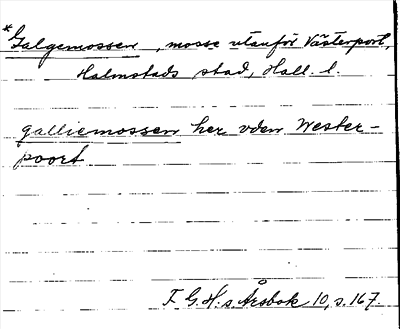 *Galgemossen, mosse utanför Västerport,
Halmstads stad, Hall. l.
galliemossen her vden Wester-
poort
F. G. H:s Årsbok 10, s. 167.